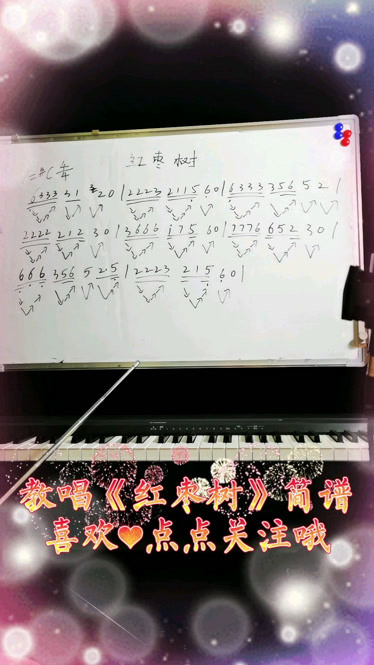 红枣树
6333 31 20|2223 2115 60|6333 356 52|
2222 212 30|3666 i75 60|7776 652 30|
666 356 5 215|2223 215 60|
教唱《红枣树》简谱
喜欢❤点点关注哦